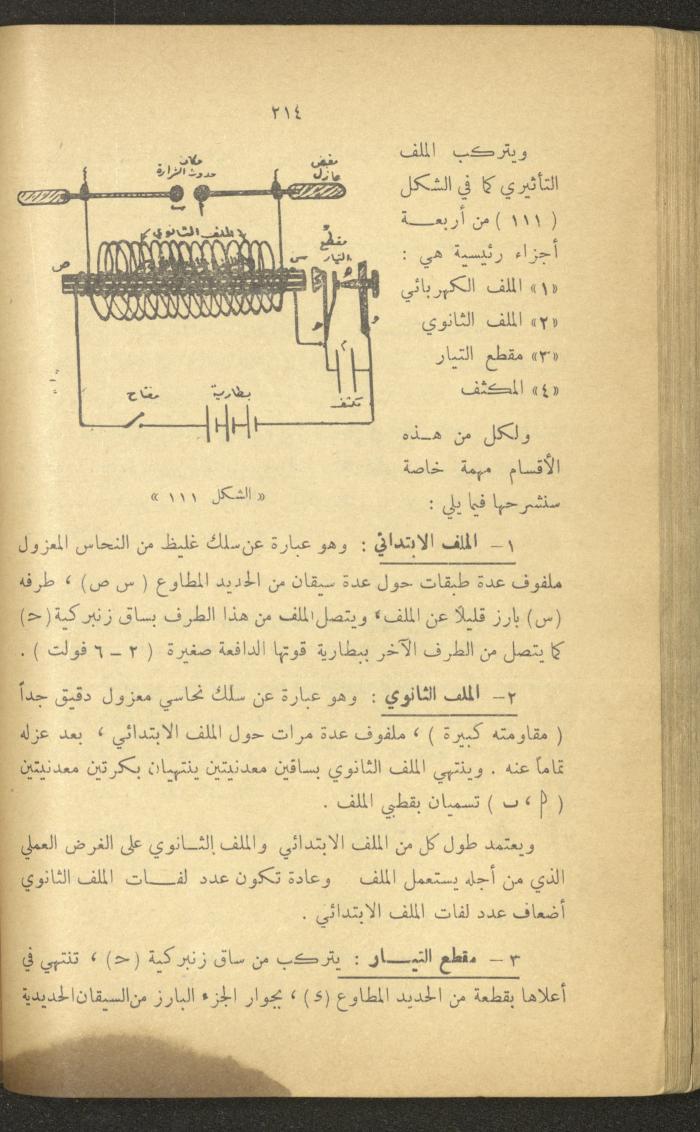 ٢١٤
ويتركب الملف
التأثيري كما في الشكل
( ١١١ ) من أربعـــة
أجزاء رئيسية هي :
«١» الملف الكهربائي
«٢» الملف الثانوي
«٣» مقطع التيار
«٤» المكثف
ولكل من هـذه
الأقسام مهمة خاصة
سنشرحها فيما يلي :
مقبض
عازل
مكان
حدوث الشرارة
الملف الثانوي
مقطع
التيار
س
ص
مكثف
بطارية
مفتاح
« الشكل ١١١ »
١ – الملف الابتدائي : وهو عبارة عن سلك غليظ من النحاس المعزول
ملفوف عدة طبقات حول عدة سيقان من الحديد المطاوع ( س ص ) ، طرفه
(س) بارز قليلا عن الملف، ويتصل الملف من هذا الطرف بساق زنبركية (ح)
كما يتصل من الطرف الآخر ببطارية قوتها الدافعة صغيرة ( ٢ – ٦ فولت ) .
٢ – الملف الثانوي : وهو عبارة عن سلك نحاسي معزول دقيق جداً
( مقاومته كبيرة ) ، ملفوف عدة مرات حول الملف الابتدائي ، بعد عزله
تماماً عنه . وينتهي الملف الثانوي بساقين معدنيتين ينتهيان بكرتين معدنيتين
( م ، ب ) تسميان بقطبي الملف .
ويعتمد طول كل من الملف الابتدائي والملف الثـــانوي على الغرض العملي
الذي من أجله يستعمل الملف وعادة تكون عدد لفـــات الملف الثانوي
أضعاف عدد لفات الملف الابتدائي .
٣ – مقطع التيـــار : يتركب من ساق زنبركية (ح) ، تنتهي في
أعلاها بقطعة من الحديد المطاوع (ء) ، بجوار الجزء البارز من السيقان الحديدية